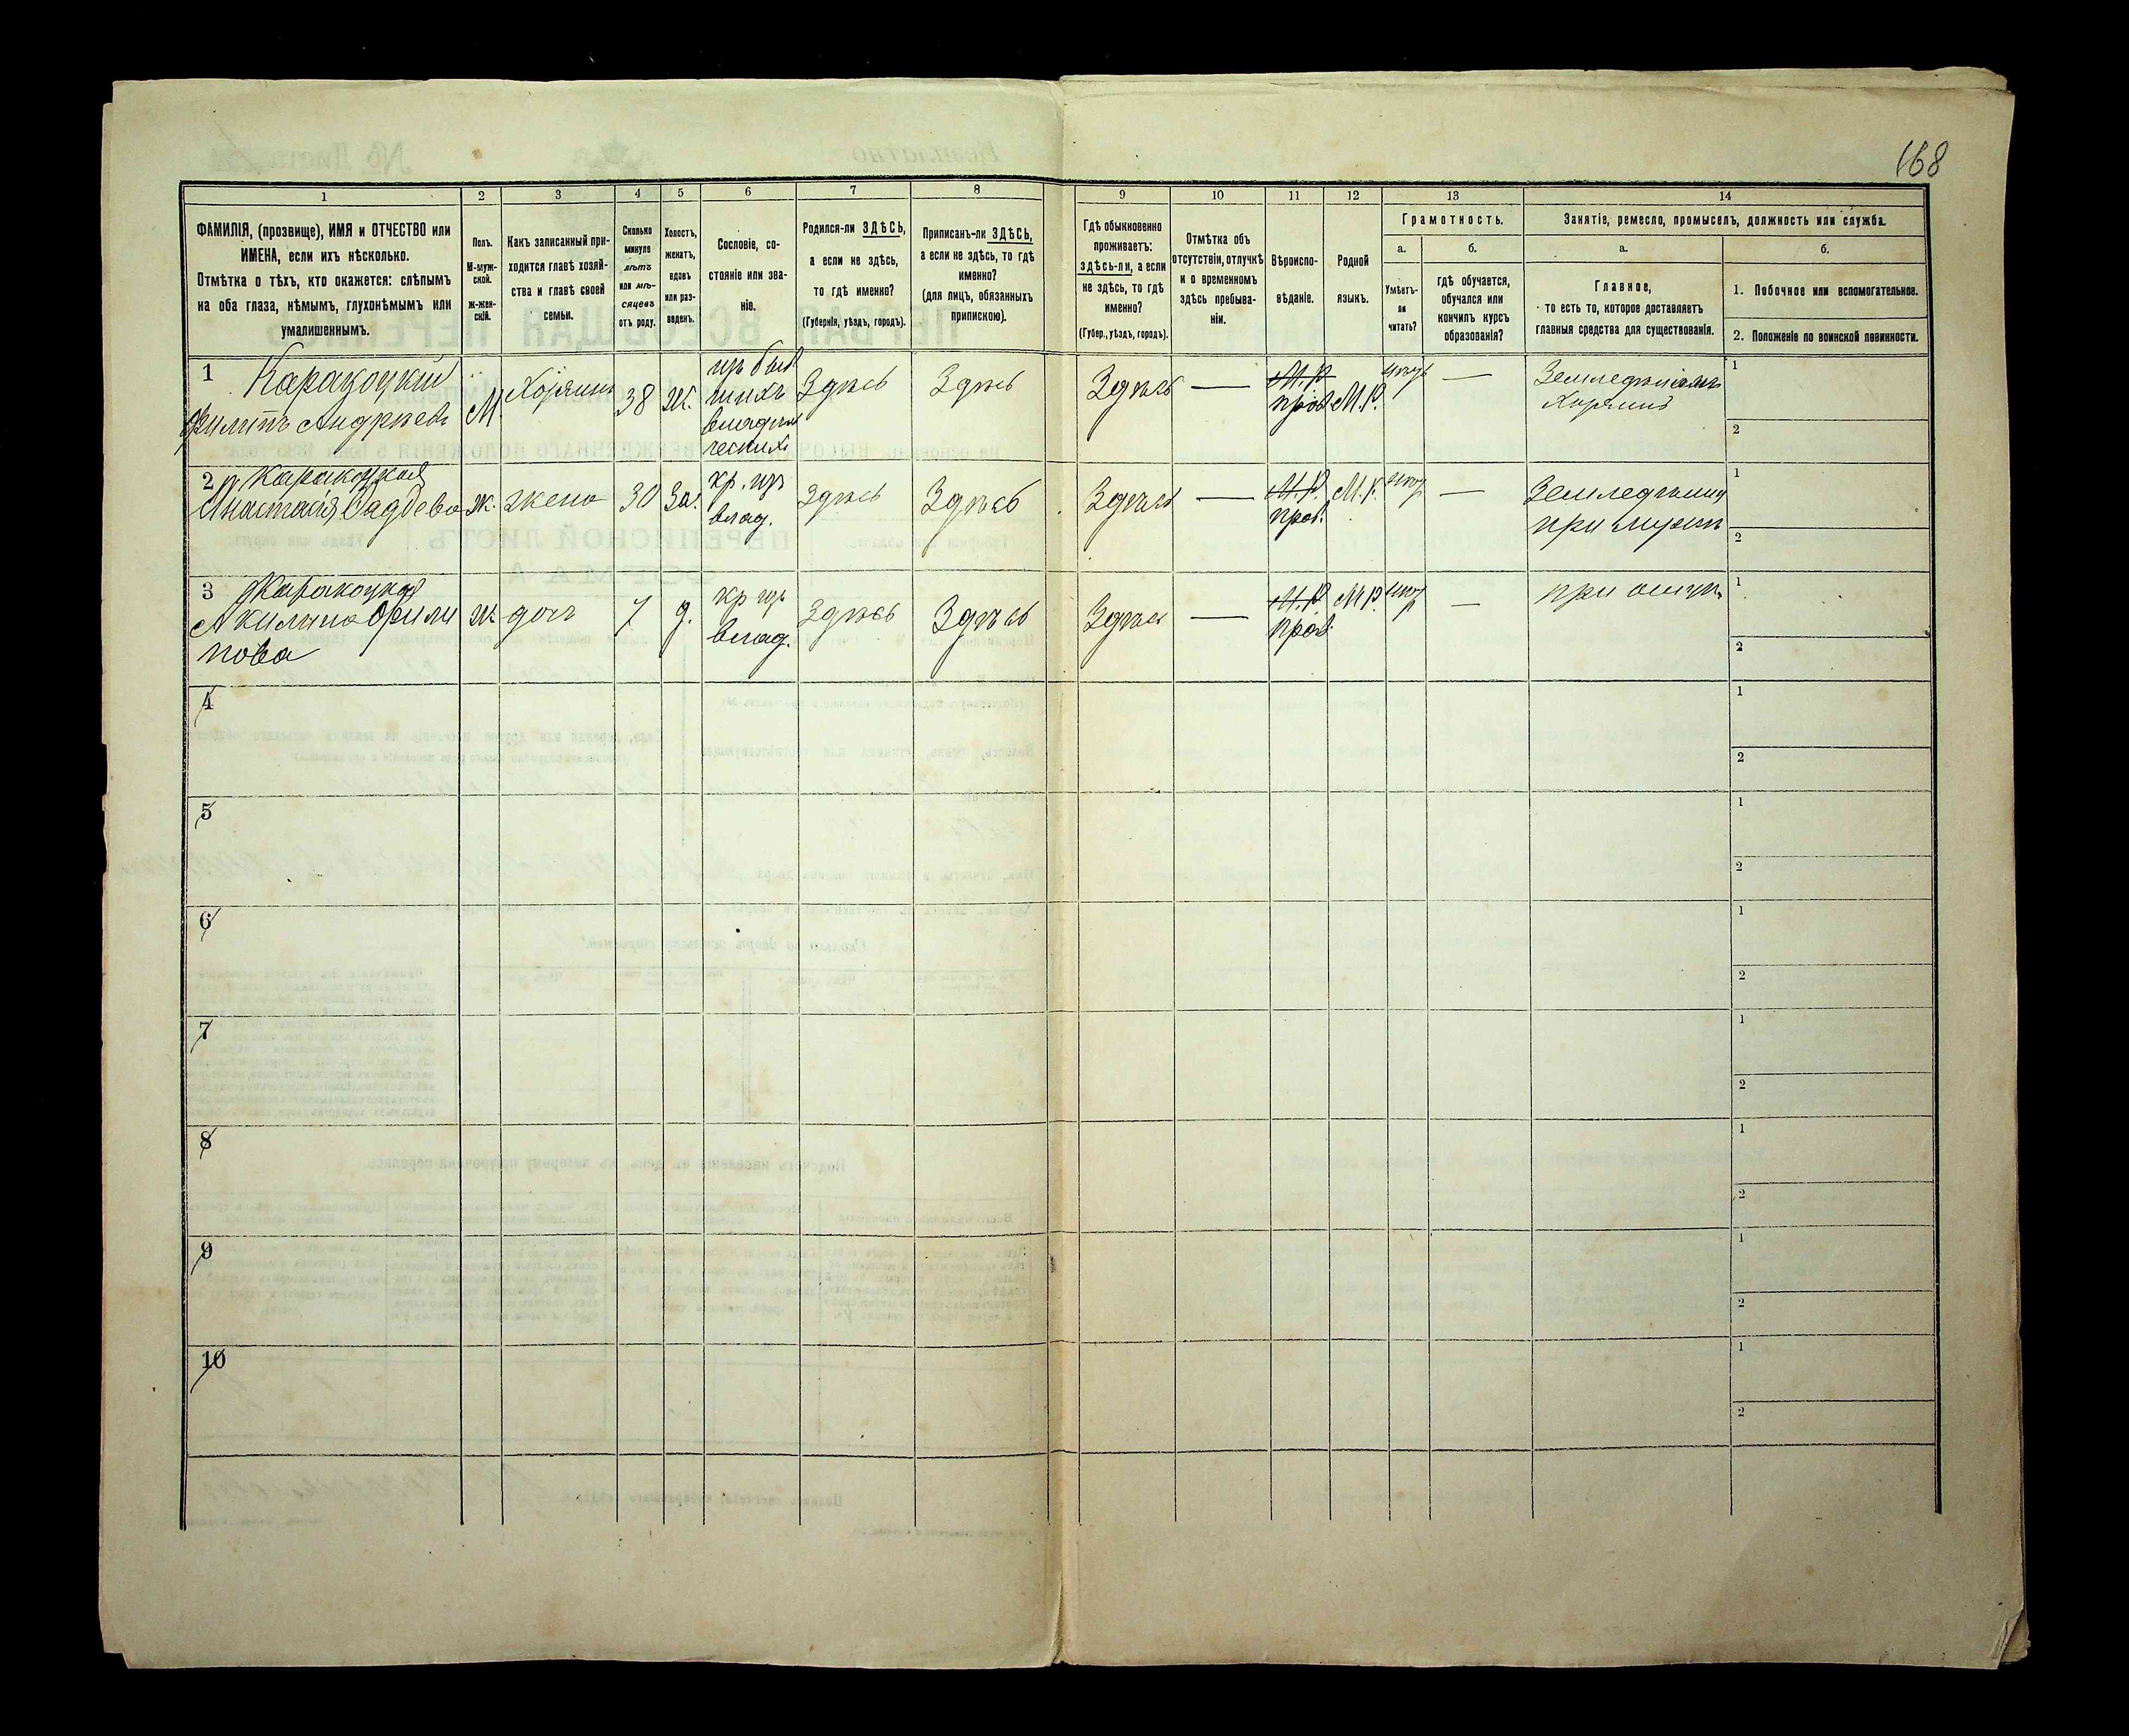 168
1 2 3 4 5 6 7 8 9 10 11 12 13 14
ФАМИЛІЯ, (прозвище), ИМЯ и ОТЧЕСТВО или
ИМЕНА, если ихъ нѣсколько.
Отмѣтка о тѣхъ, кто окажется: слѣпымъ
на оба глаза, нѣмымъ, глухонѣмымъ или
умалишеннымъ.
Полъ.
М-муж-
ской.
ж-жен-
скій.
Какъ записанный при-
ходится главѣ хозяй-
ства и главѣ своей
семьи.
Сколько
минуло
лѣтъ
или мѣ-
сяцевъ
отъ роду.
Холостъ,
женатъ,
вдовъ
или раз-
веденъ.
Сословіе, со-
стояніе или зва-
ніе.
Родился-ли ЗДѢСЬ,
а если не здѣсь,
то гдѣ именно?
(Губернія, уѣздъ, городъ).
Приписанъ-ли ЗДѢСЬ,
а если не здѣсь, то гдѣ
именно?
(для лицъ, обязанныхъ
припискою).
Гдѣ обыкновенно
проживаетъ:
здѣсь-ли, а если
не здѣсь, то гдѣ
именно?
(Губер., уѣздъ, городъ).
Отмѣтка объ
отсутствіи, отлучкѣ
и о временномъ
здѣсь пребыва-
ніи.
Вѣроиспо-
вѣданіе.
Родной
языкъ.
Грамотность.
а.
Умѣетъ-
ли
читать?
б.
гдѣ обучается,
обучался или
кончилъ курсъ
образованія?
Занятіе, ремесло, промыселъ, должность или служба.
а.
Главное,
то есть то, которое доставляетъ
главныя средства для существованія.
б.
1. Побочное или вспомогательное.
2. Положеніе по воинской повинности.
1 Каракоцкий
Филипъ Андрѣевъ
М. Хозяинъ 38 Ж.
изъ быв
шихъ
владѣл
ческихъ
Здѣсь Здѣсь Здѣсь —
М.Р.
прав. М.Р. —
Хозяинъ
1
2
2 Каракоцкая
Анастасія
Ж. жена 30 За.
кр. изъ
влад.
Здѣсь Здѣсь Здѣсь —
М.Р. М.Р. —
прав.
при мужѣ
1
2
3 Каракоцкая
Акилина Фили
пова
Ж. дочь 7 д.
кр изъ
влад.
Здѣсь Здѣсь Здѣсь —
М.Р. М.Р. —
прав.
при отцѣ
1
2
4
1
2
5
1
2
6
1
2
7
1
2
8
1
2
9
1
2
10
1
2